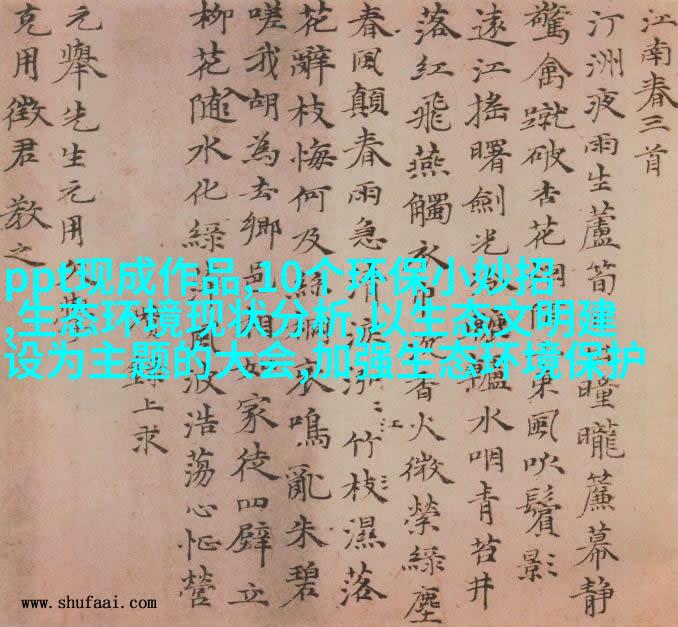 江南春三首
汀洲夜雨生蘆筍曈曨簾幕靜
驚禽蹴破杏花東風吹鬢影
遠江搖曙劍光轤水咽青苔井
落紅飛燕觸衣巾香火微縈綠塵
春風顛春雨急清淚泓江竹枝濕落
花辭枝悔何及絲桐哀鳴亂朱碧
嗟我胡為去鄉邑相如家徒四壁立
柳花隨水化綠風波浩蕩心怔營
錄上求
元舉先生元用
克用徵君教之
ppt现成作品,10个环保小妙招
,生态环境现状分析,以生态文明建
设为主题的大会,加强生态环境保护
www.shufaai.com